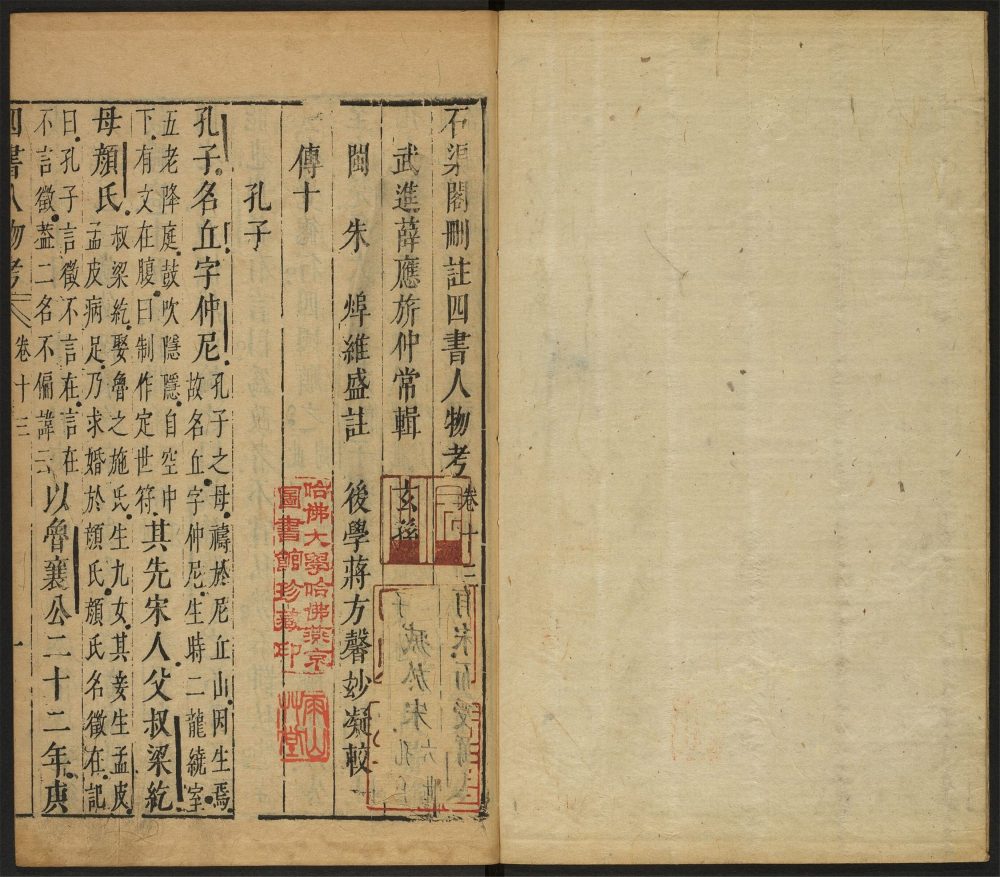 石渠閣刪註四書人物考卷十三
武進薛應旂仲常輯 玄孫
閩 朱 焞維盛註 後學蔣方馨妙凝較
傳十
孔子
孔子名丘字仲尼孔子之母禱於尼丘山因生焉故名丘字仲尼生時二龍繞室
五老降庭鼓吹隱隱自空中下有文在腹曰制作定世符其先宋人父叔梁紇
母顏氏叔梁紇娶魯之施氏生九女其妾生孟皮孟皮病足乃求婚於顏氏顏氏名徵在記
曰孔子言徵不言在言在不言徵葢二名不偏諱云以魯襄公二十二年庚
四書人物考 卷十三 一
哈佛大學哈佛燕京
圖書館珍藏印
雨山
艸堂